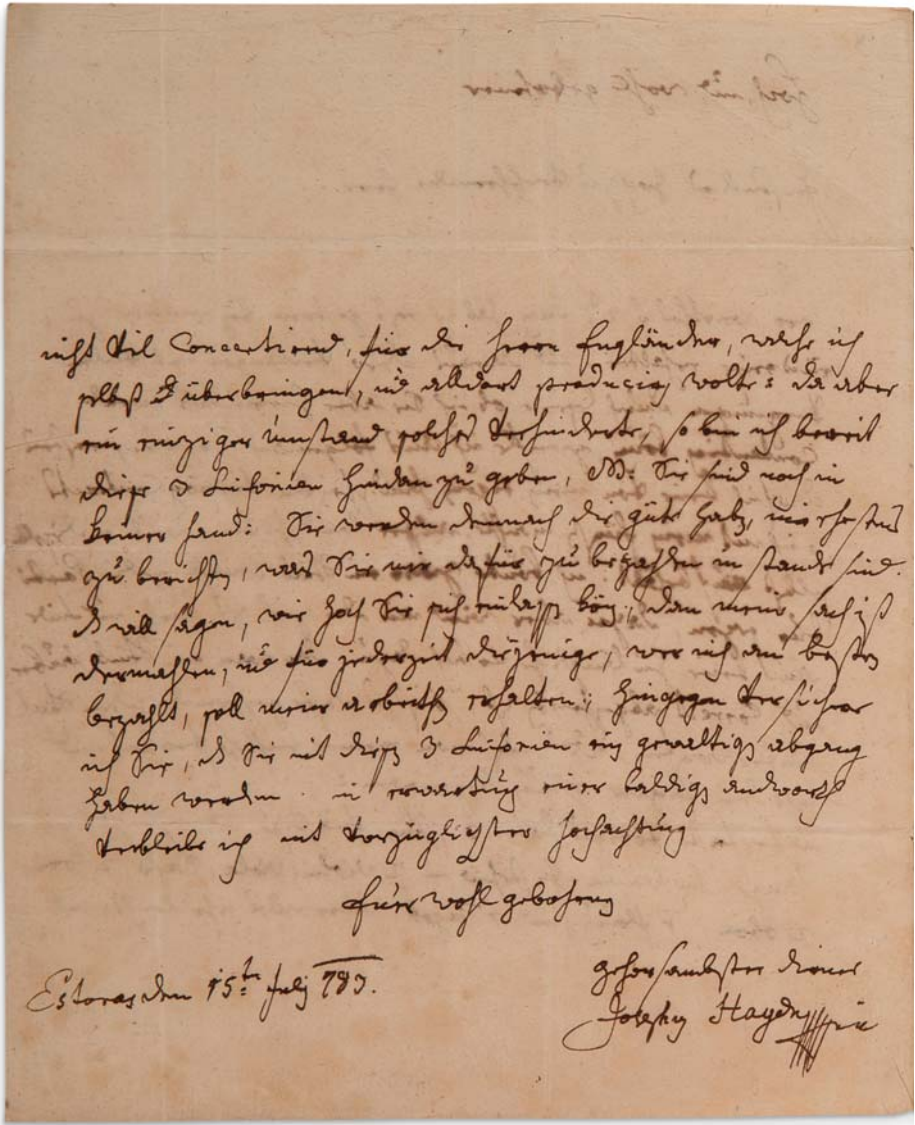 nicht viel Concertirend, für die Herrn Engländer, welche ich
selbst überbringen, und alldort produciren wolte: da aber
ein einziger umstand solches verhinderte, so bin ich bereit
diese 3 Sinfonien hindan zu geben, NB: Sie sind noch in
keiner hand: Sie werden demnach die güte haben, mir ehestens
zu berichten, was Sie mir dafür zu bezahlen im stande sind.
will sagen, wie hoch Sie sich einlassen können, dan mein sach ist
dermahlen, und für jederzeit diejenige, wer mich am besten
bezahlt, soll meine arbeithen erhalten: hingegen versichere
ich Sie, daß Sie mit diesen 3 Sinfonien ein gewaltigen abgang
haben werden. in erwartung einer baldigen andworth
verbleibe ich mit vorzüglichster hochachtung
Euer wohlgebohren
Estoras den 15ten July 783.
gehorsambster diener
Josephus Haydn